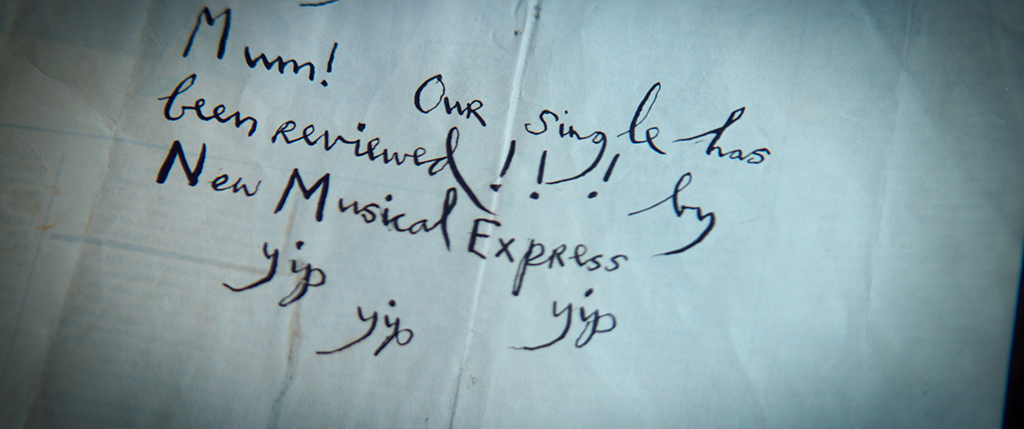 Mum!
Our single has
been reviewed !!! by
New Musical Express
yip
yip yip